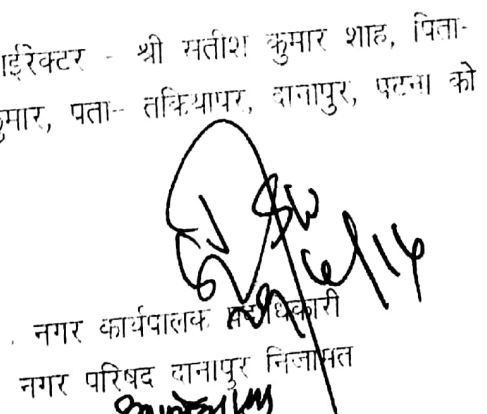 ाईरेक्टर - श्री सतीश कुमार शाह, पिता-
कुमार, पता-- तकियापर, दानापुर, पटना को
नगर कार्यपालक पदाधिकारी
नगर परिषद दानापुर निजामत